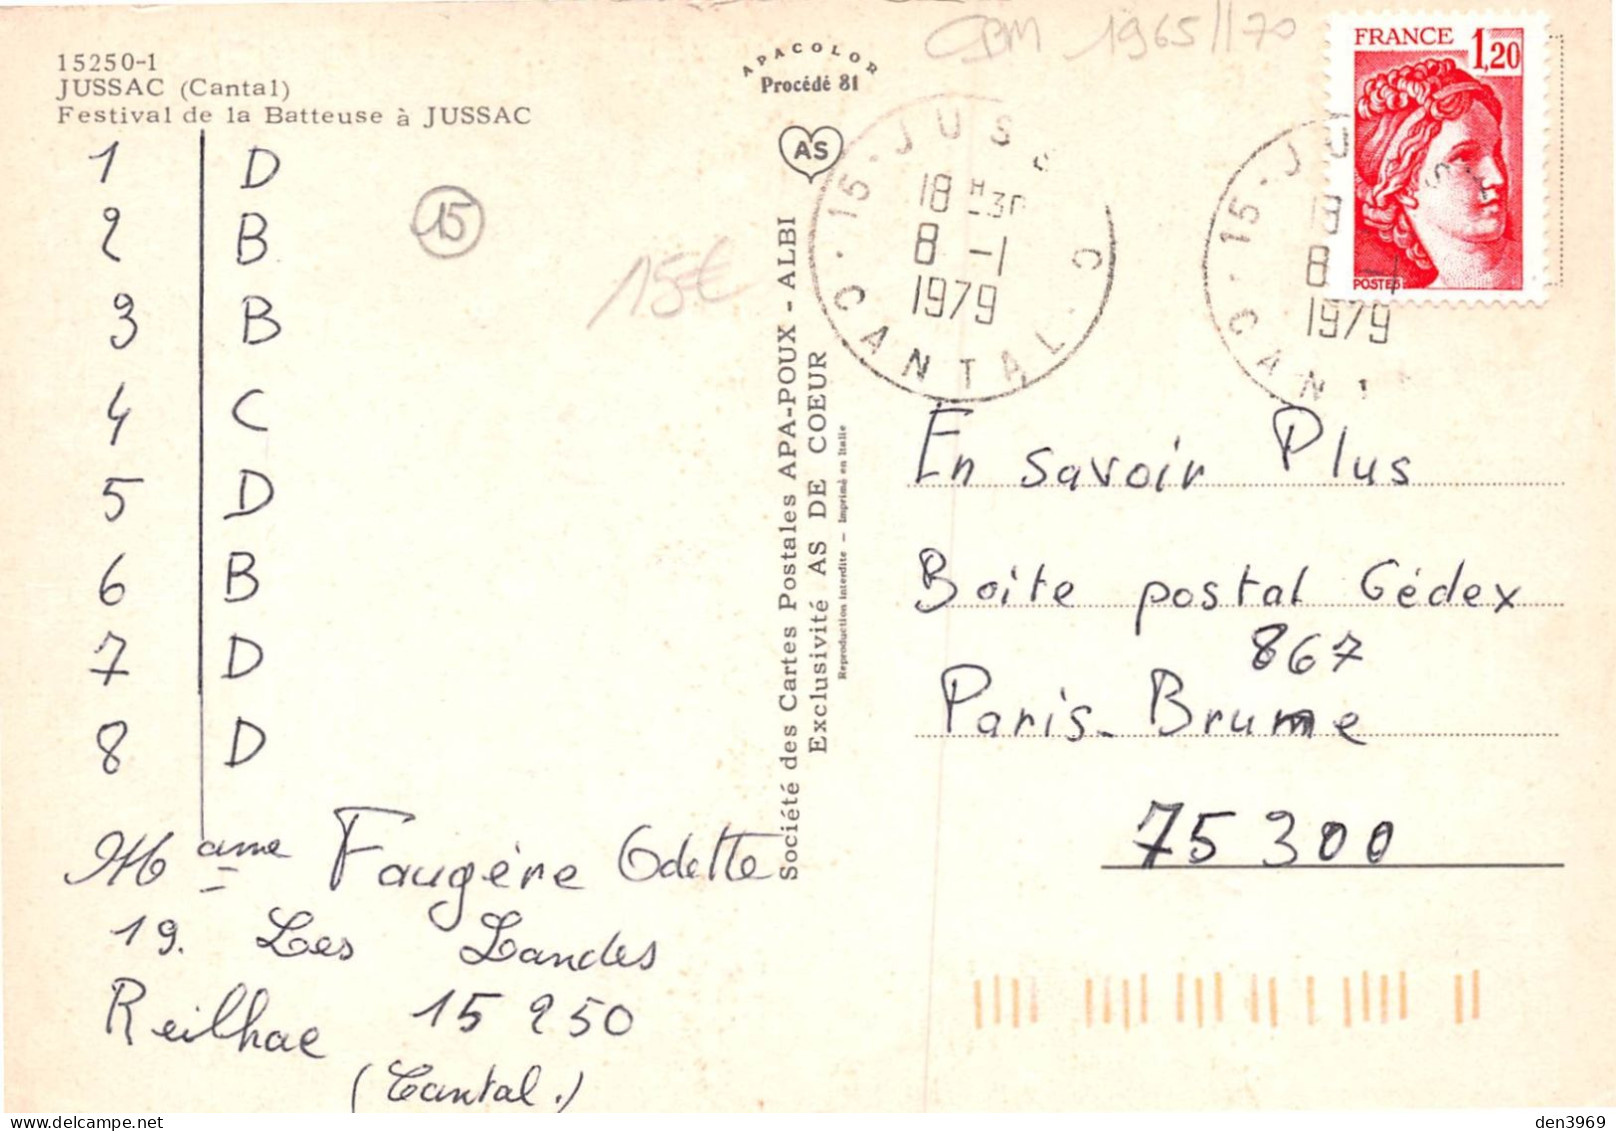 15250-1
JUSSAC (Cantal)
Festival de la Batteuse à JUSSAC
1 D
2 B
3 B
4 C
5 D
6 B
7 D
8 D
15
15€
Mame Faugère Odette
19. Les Landes
Reilhac 15250
(Cantal.)
APACOLOR
Procédé 81
AS
Société des Cartes Postales APA-POUX - ALBI
Exclusivité AS DE COEUR
Reproduction interdite - Imprimé en Italie
CPM 1965//70
15-JUSSAC
18H-30
8-1
1979
CANTAL
FRANCE 1,20
POSTES
15-JUS
18
8-1
1979
CANT
En savoir Plus
Boite postal Cédex
867
Paris-Brume
75300
den3969